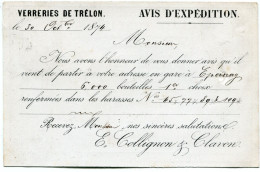 VERRERIES DE TRÉLON. AVIS D'EXPÉDITION.
le 30 Octbre 1874
Monsieur
Nous avons l'honneur de vous donner avis qu'il
vient de partir à votre adresse en gare à Epernay
6.000 bouteilles 1re choix
renfermées dans les harasses Nos 45.77.
Recevez nos sincères salutations
E. Collignon & Clavon